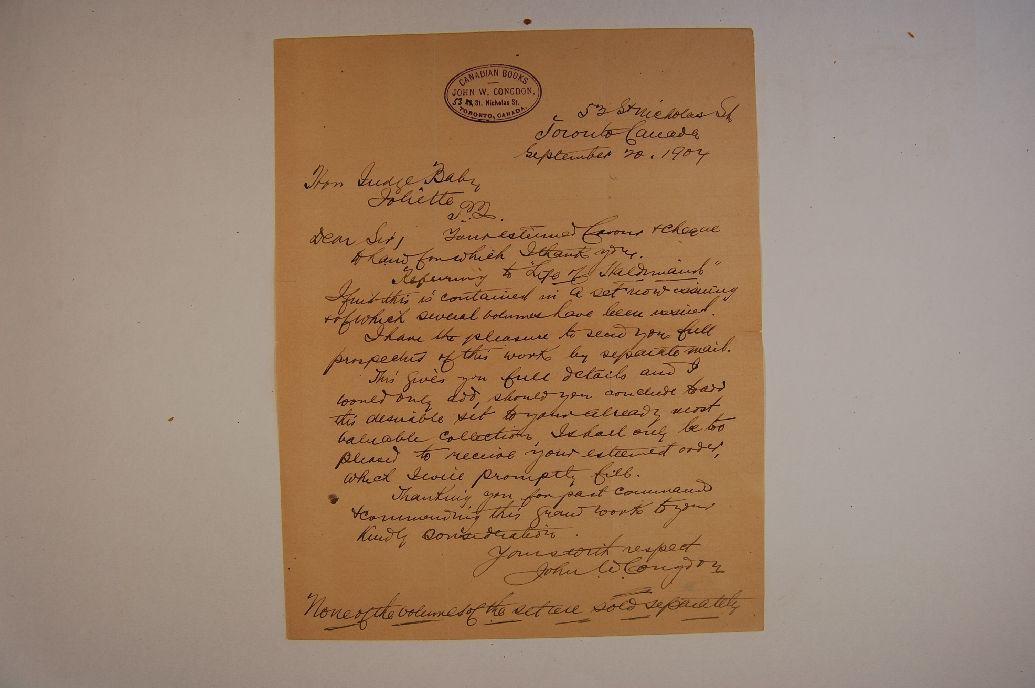 CANADIAN BOOKS
JOHN W. CONGDON,
53 St. Nicholas St.
TORONTO, CANADA.
52 St Nicholas St,
Toronto Canada
September 20, 1904
Hon Judge Baby,
Joliette
P.Q.
Dear Sir, Your esteemed favour & cheque
to hand for which I thank you.
Referring to "Life of Haldimand"
I find this is contained in a set now issuing
& of which several volumes have been issued.
I have the pleasure to send you full
prospectus of this work by separate mail.
This gives you full details and I
would only add, should you conclude to add
this desirable set to your already most
valuable collection, I shall only be too
pleased to receive your esteemed order,
which I will promptly fill.
Thanking you for past command
& commending this grand work to your
kindly consideration.
Yours with respect
John W. Congdon
None of the volumes of the set are sold separately